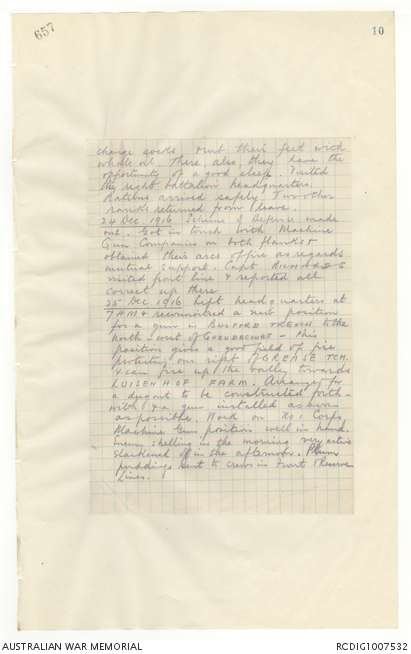 657
10
change socks, & rub their feet with
whale oil. There, also, they have the
opportunity of a good sleep. Visited
my right battalion headquarters.
Rations arrived safely. Two other
ranks returned from leave.
24 Dec 1916 Scheme of Defence made
out. Got in touch with Machine
Gun Companies on both flanks &
obtained their arcs of fire as regards
mutual support. Capt
visited front line & reported all
correct up there
25 Dec 1916 Left headquarters at
7 AM & reconnoitred a new position
for a gun in BULFORD TRENCH to the
north-west of GUEUDECOURT - this
position gives a good field of fire
protecting our right of GREASE TCH.
& can fire up the valley towards
LUISENHOF FARM. Arranged for
a dug out to be constructed forth-
with & a gun installed as soon
as possible. Work on Corps
Machine Gun position well in hand.
Enemy shelling in the morning very active
slackened off in the afternoon. Plum
puddings sent to crews in Front & Reserve
Lines.
AUSTRALIAN WAR MEMORIAL
RCDIG1007532